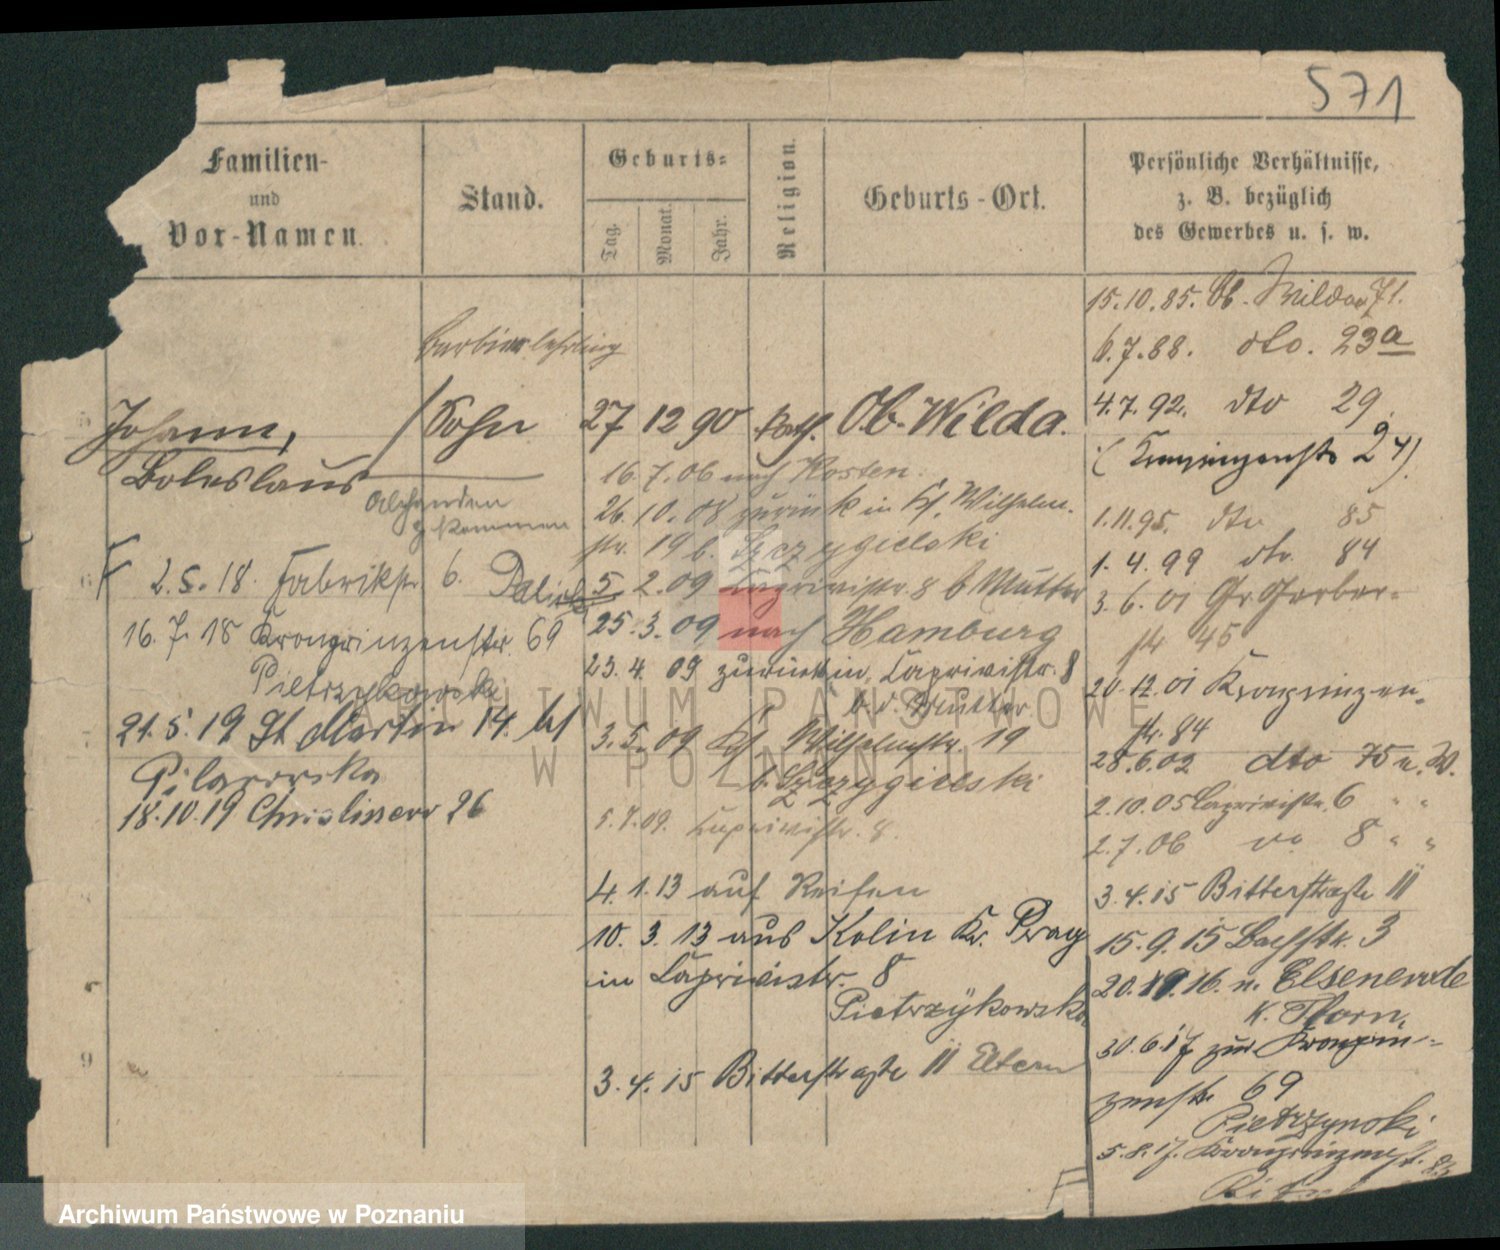 571
Familien-
und
Vor-Namen.
Stand.
Geburts-
Tag.
Monat.
Jahr.
Religion.
Geburts-Ort.
Persönliche Verhältnisse,
z. B. bezüglich
des Gewerbes u. s. w.
Barbierlehrling
Johann,
Boleslaus
Sohn
27 12 90 kath. Ob. Wilda.
16.7.06 nach Kosten.
26.10.08 zurück in Wilhelm-
str. 19 b. Szczygielski
5.2.09 Caprivistr. 8 b Mutter
25.3.09 nach Hamburg
23.4.09 zurück in Caprivistr. 8
b. d. Mutter
3.5.09 Wilhelmstr. 19
b. Szczygielski
5.7.09. Caprivistr. 8.
4.1.13 auf Reisen
10.3.13 aus Kolin Kr. Prag
in Caprivistr. 8
Pietrzykowska
3.4.15 Bitterstraße II Eltern
2.5.18. Fabrikstr. 6.
16.7.18 Kronprinzenstr. 69
Pietrzykowski
21.5.19 St Martin 14. bei
Pilarowska
18.10.19 26
15.10.85. Ob. Wilda 71.
6.7.88. dto. 23a
4.7.92. dto 29.
(Kronprinzenstr 24)
1.11.95. dto 85
1.4.99 dto. 84
3.6.01 Gr. Gerber-
str 45
20.12.01 Kronprinzen-
str. 84
28.6.02 dto 75 u. W.
2.10.05 Caprivistr. 6 " "
2.7.06 8 " "
3.4.15 Bitterstraße II
15.9.15 Bachstr. 3
20. 16. n. Elsenerode
K. Thorn.
30.6.17 zur. Kronprin-
zenstr 69
5.8.17. Kronprinzenst. 83
ARCHIWUM PAŃSTWOWE
W POZNANIU
Archiwum Państwowe w Poznaniu